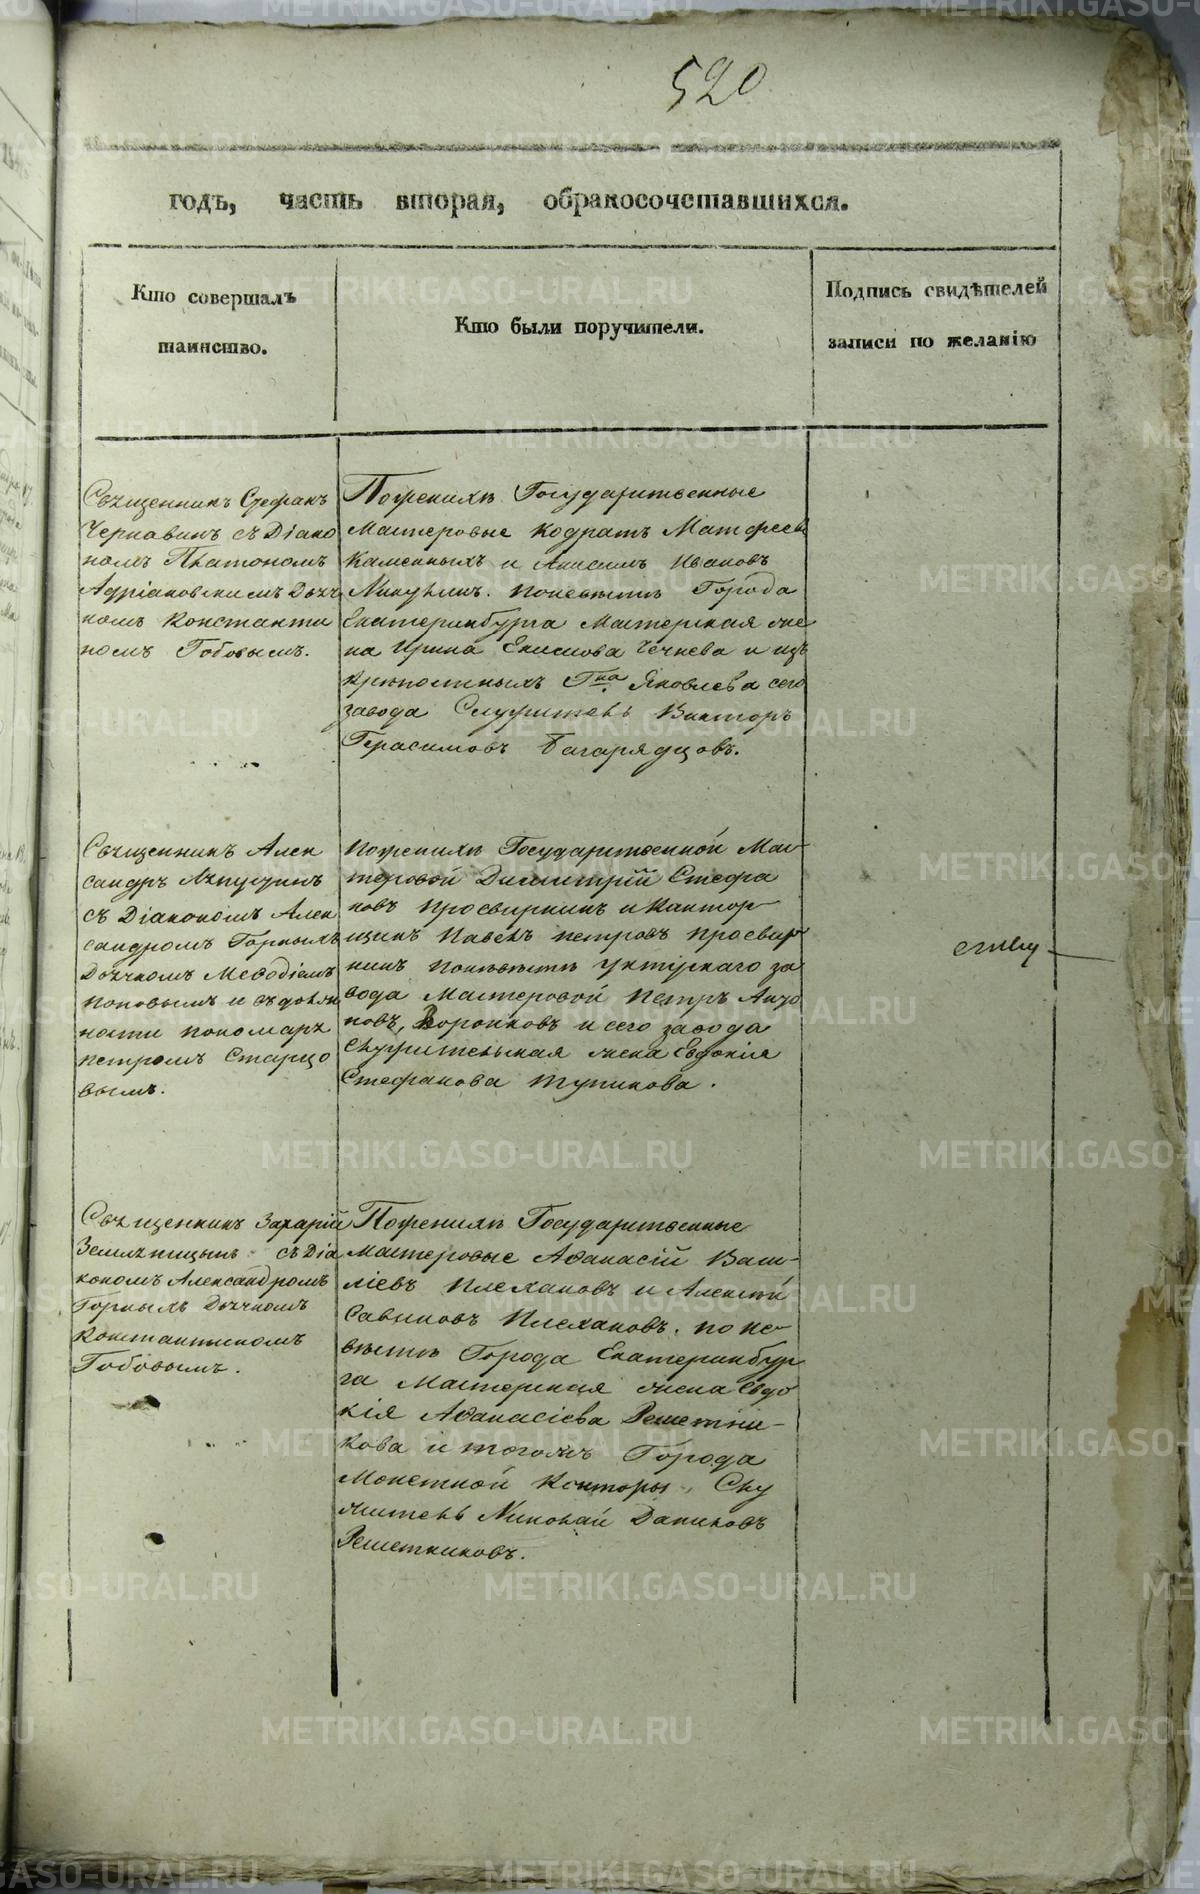 520
годъ, часть вторая, обракосочетавшихся.
Кто совершалъ
таинство.
Кто были поручители.
Подпись свидѣтелей
записи по желанію
Священникъ Стефанъ
Чернавинъ съ Діако
номъ Платономъ
Адріановскимъ Дьяч
комъ Константи
номъ Гобовымъ.
По женихѣ Государственные
Мастеровые Кодратъ Матфеевъ
Каменныхъ и Анисимъ Ивановъ
Микулинъ. По невѣстѣ Города
Екатеринбурга Мастерская же
на Ирина Екимова и изъ
крѣпостныхъ Гна Яковлева сего
завода Служитель Викторъ
Герасимовъ Багарядцовъ.
Священникъ Алек
сандръ
съ Діакономъ Алек
сандромъ Горныхъ
Дьячкомъ Меѳодіемъ
Поповымъ и въ должн
ности пономаря
Петромъ Старцо
вымъ.
По женихѣ Государственной Мас
теровой Димитрій Стефа
новъ Просвирнинъ и Кантор
щикъ Павелъ Петровъ Просвир
нинъ По невѣстѣ Уктускаго за
вода Мастеровой Петръ
Воронковъ и сего завода
Служительская жена Евдокія
Стефанова Тупикова.
Священникъ Захарій
Земляницынъ съ Діа
кономъ Александромъ
Горныхъ Дьячкомъ
Константиномъ
Гобовымъ.
По женихѣ Государственные
мастеровые Аѳанасій Васи
ліевъ Плехановъ и Алексѣй
Савиновъ Плехановъ. по не
вѣстѣ Города Екатеринбур
га Мастерская жена Евдо
кія Аѳанасіева Решетни
кова и тогожъ Города
Монетной Конторы Слу
житель Николай Даниловъ
Решетниковъ.
METRIKI.GASO-URAL.RU